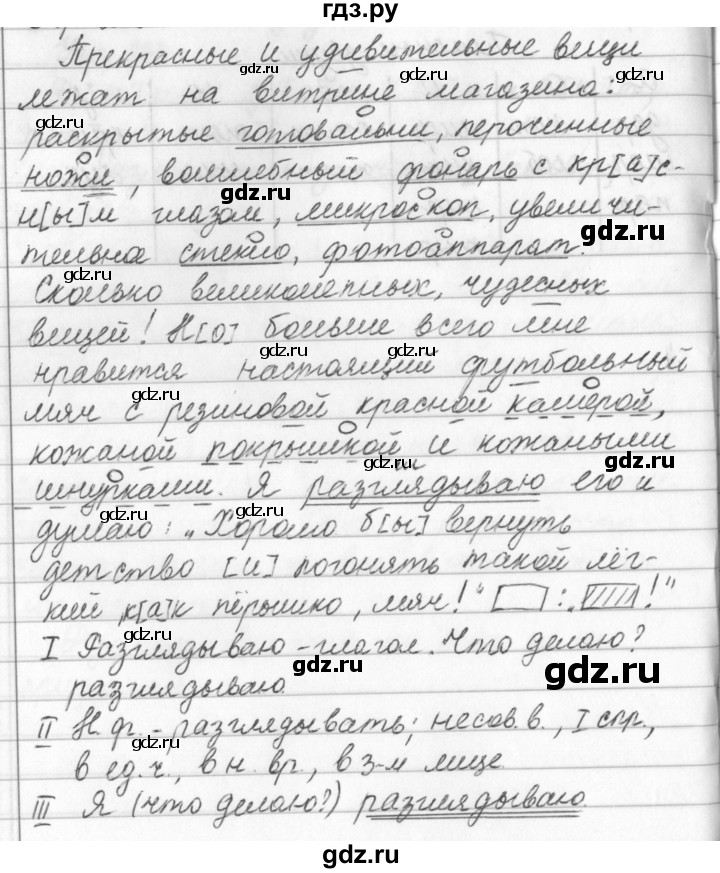 гдз.ру
Прекрасные и удивительные вещи
лежат на витрине магазина:
раскрытые готовальни, перочинные
ножи, волшебный фонарь с кр[а]с-
н[ы]м глазом, микроскоп, увеличи-
тельное стекло, фотоаппарат.
Сколько великолепных, чудесных
вещей! Н[о] больше всего мне
нравится настоящий футбольный
мяч с резиновой красной камерой,
кожаной покрышкой и кожаными
шнурками. Я разглядываю его и
думаю: „Хорошо б[ы] вернуть
детство [и] погонять такой лёг-
кий, к[а]к пёрышко, мяч!“ : „!“
I Разглядываю - глагол. Что делаю?
разглядываю.
II Н.ф. - разглядывать; несов.в., I спр.,
в ед.ч., в н. вр., в 3-м лице.
III Я (что делаю?) разглядываю.
gdz.ru